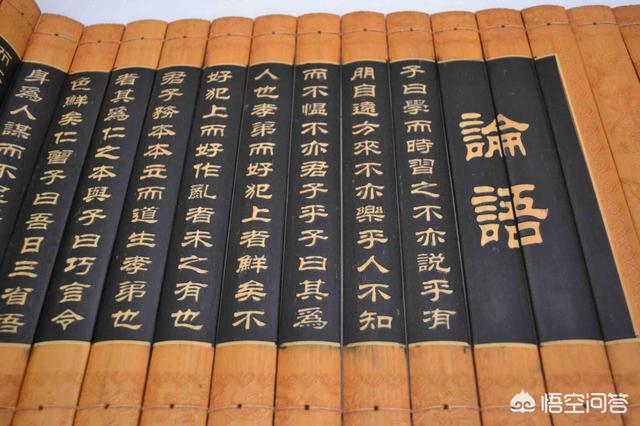 論語
子曰學而時習之不亦説乎有
朋自遠方來不亦樂乎人不知
而不愠不亦君子乎子曰其爲
人也孝弟而好犯上者鮮矣不
好犯上而好作亂者未之有也
君子務本本立而道生孝弟也
者其爲仁之本與子曰巧言令
色鮮矣仁曾子曰吾日三省吾
身爲人謀而不
悟空问答